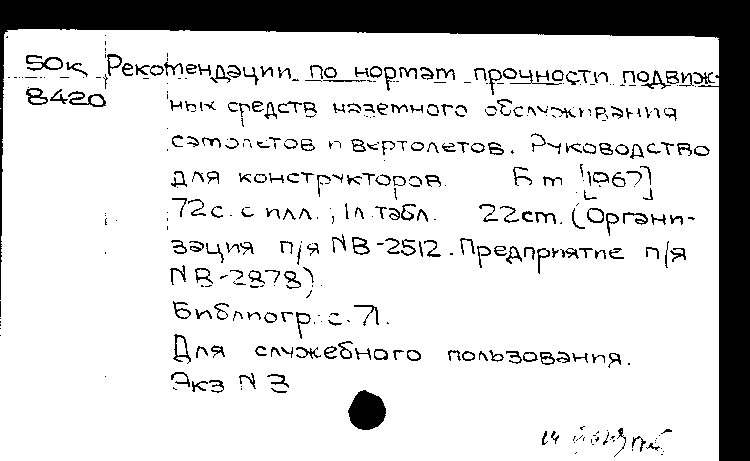 50к Рекомендации по нормам прочности подвиж-
8420 ных средств наземного обслуживания
самолетов и вертолетов. Руководство
для конструкторов. Б м [1967]
72с. с илл.; 1л. табл. 22см. (Органи-
зация п/я NВ-2512. Предприятие п/я
NВ-2878).
Библиогр.: с. 71.
Для служебного пользования.
Экз N 3